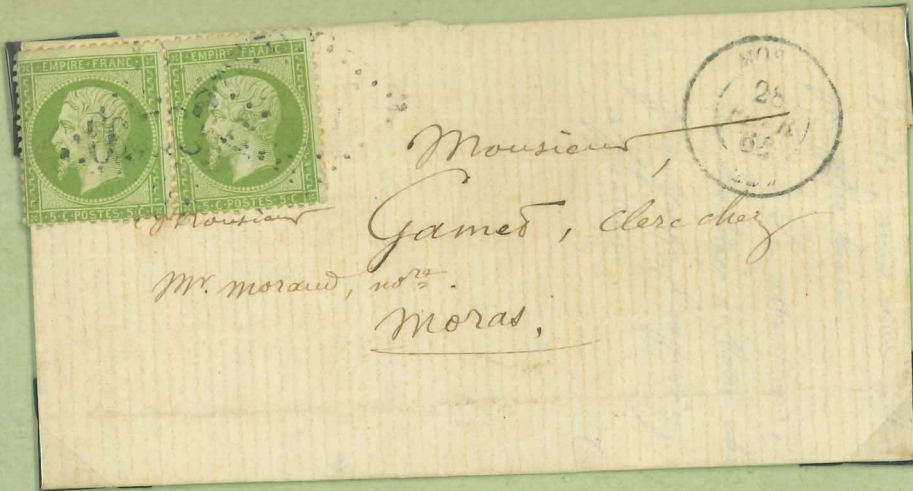 EMPIRE FRANC
5·C·POSTES·5·C
EMPIRE FRANC
5·C·POSTES·5·C
MOR
28
Monsieur,
Monsieur
Gamet, clerc chez
Mr. Morand, nore.
Moras.